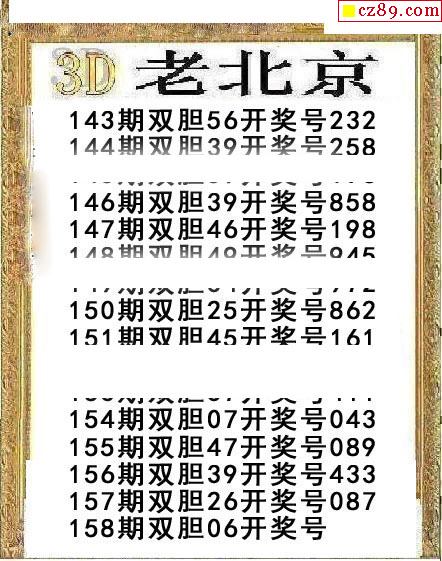 cz89.com
3D 老北京
143期双胆56开奖号232
144期双胆39开奖号258
146期双胆39开奖号858
147期双胆46开奖号198
148期双胆49开奖号945
150期双胆25开奖号862
151期双胆45开奖号161
154期双胆07开奖号043
155期双胆47开奖号089
156期双胆39开奖号433
157期双胆26开奖号087
158期双胆06开奖号